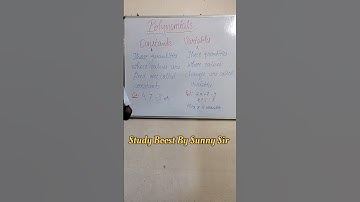 Polynomials
Constants
Those quantities
whose values are
fixed are called
constants
Ex:- 4, 7, -3 etc
Variables
Those quantities
whose values
changes are called
Study Boost By Sunny Sir